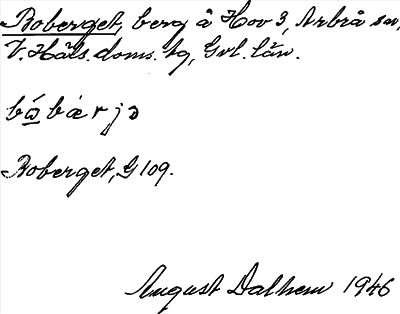 Boberget, berg å Hov 3, Arbrå sn,
V. Häls. doms. tg, Gvl. län.
Boberget, G 109.
August Dalhem 1946